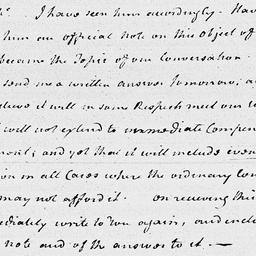 I have seen him accordingly. Hav
him our official Note on this Object of
became the Topic of our Conversation.
send me a written answer tomorrow; a
lieves it will in some Respects meet our w
will not extend to immediate Compen
ment; and yet that it will include even
ion in all Cases where the ordinary cou
may not afford it. on receiving this
mediately write to You again, and encl
note and of the answer to it. —